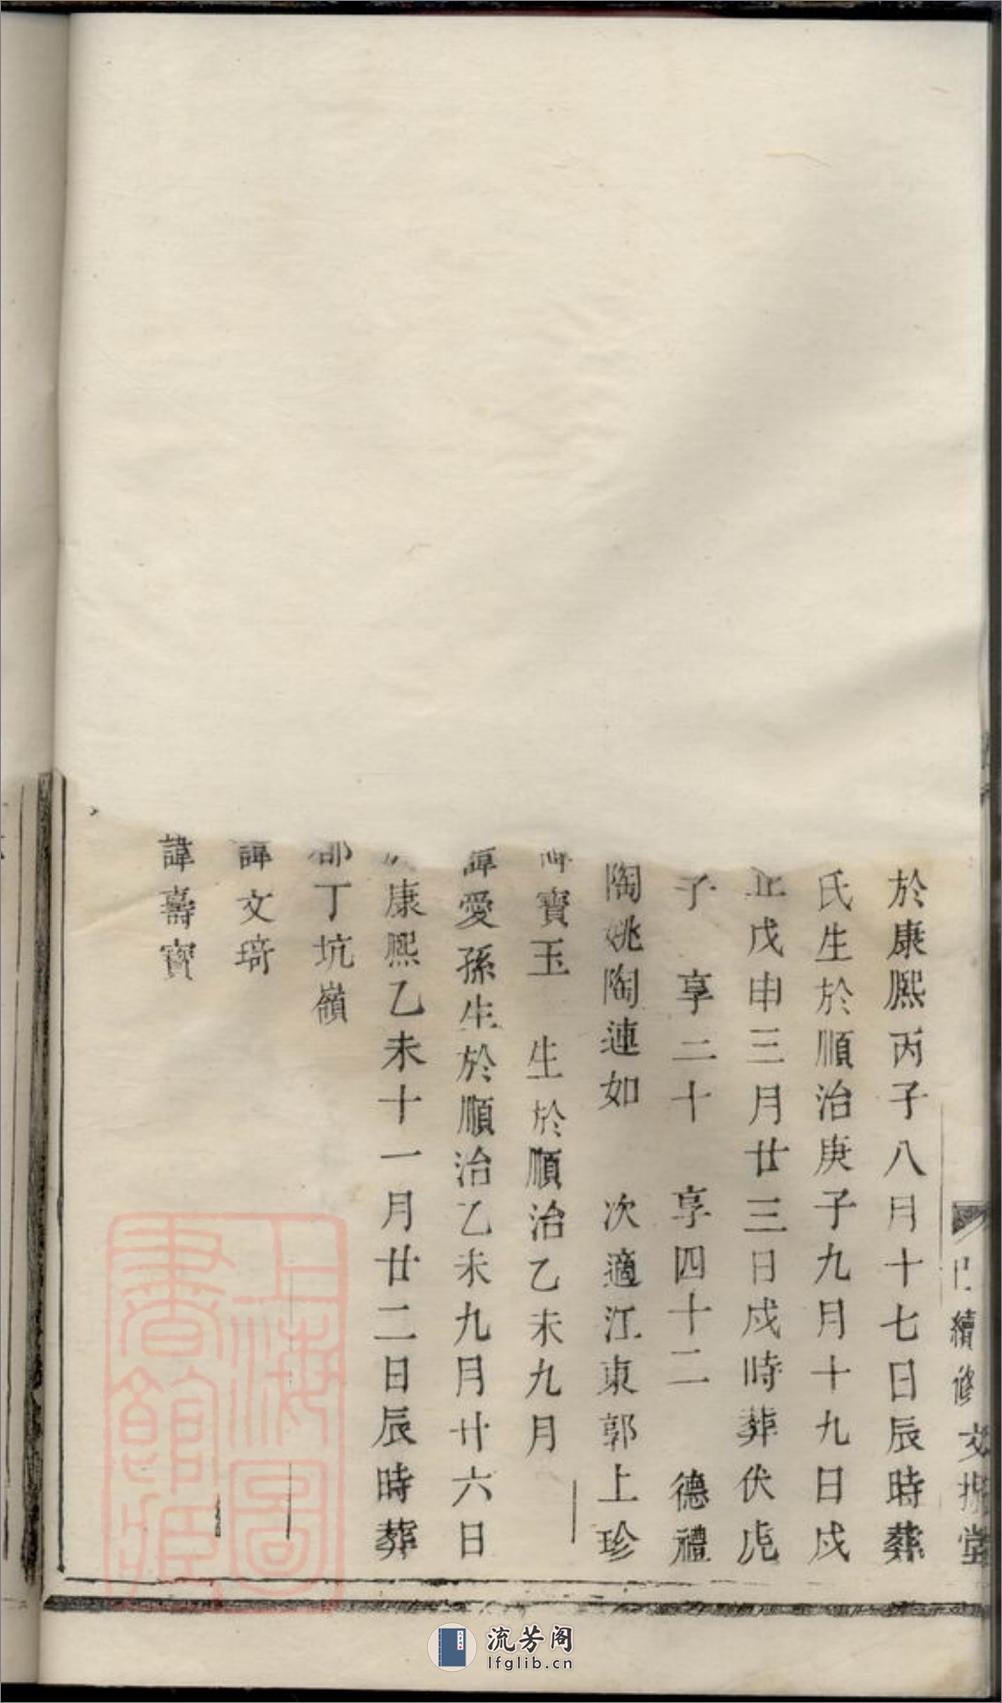 續修
堂
於康熙丙子八月十七日辰時葬
氏生於順治庚子九月十九日戌
戊申三月廿三日戌時葬伏虎
子 享二十 享四十二 德禮
陶姚陶連如 次適江東郭上珍
寶玉 生於順治乙未九月
諱愛孫生於順治乙未九月廿六日
康熙乙未十一月廿二日辰時葬
都丁坑嶺
諱文琦
諱壽寶
上海圖
書館藏
流芳阁
lfglib.cn